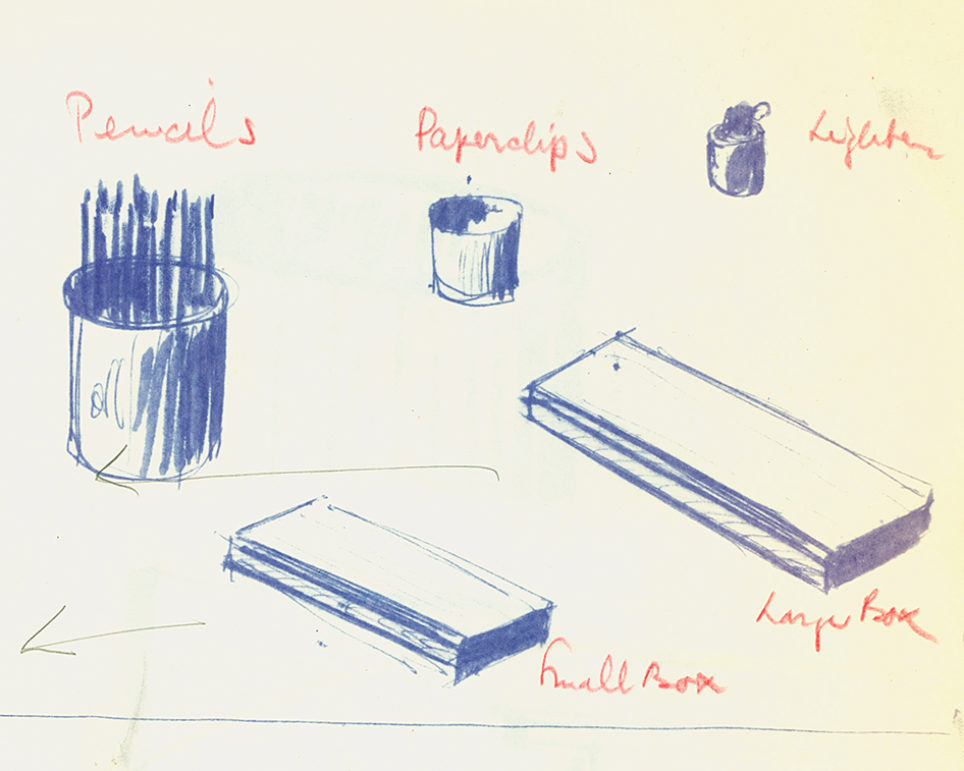 Pencils
Paperclips
Lighter
Large Box
Small Box